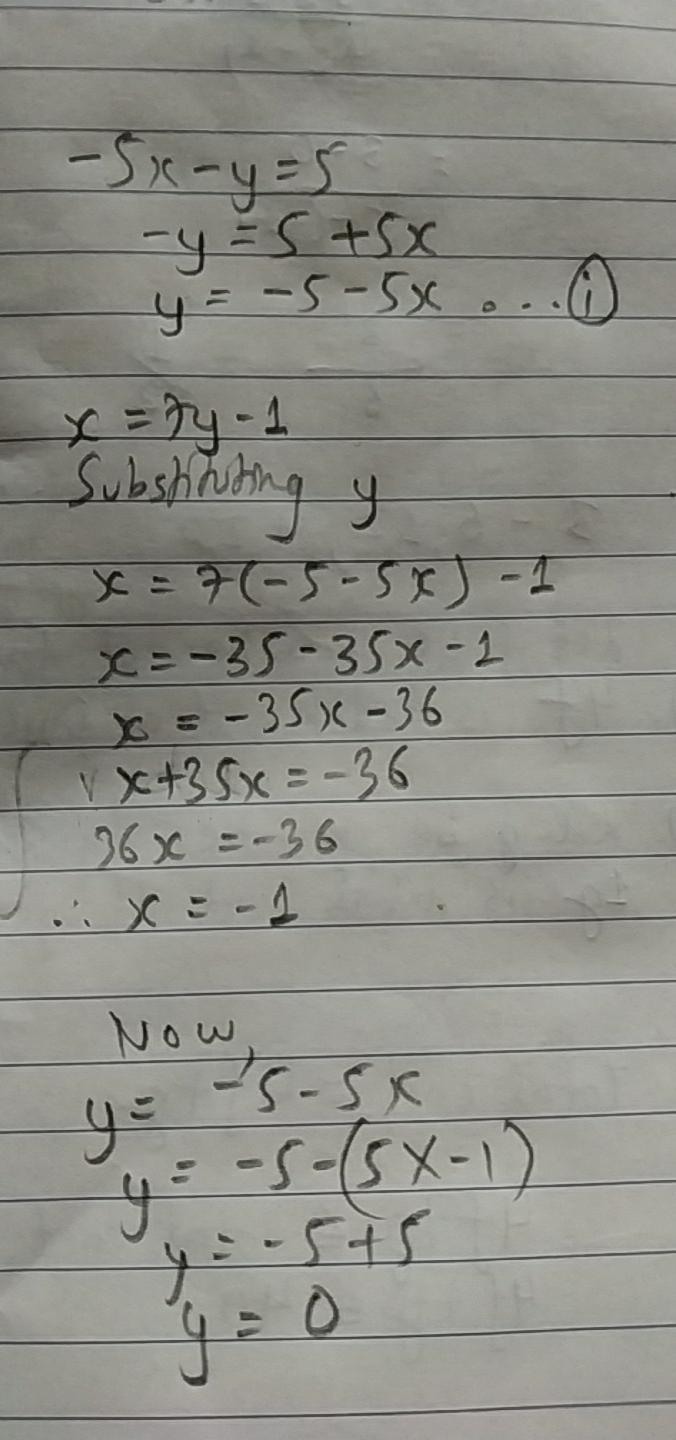 -5x-y=5
-y=5+5x
y=-5-5x ...(i)
x=7y-1
Substituting y
x=7(-5-5x)-1
x=-35-35x-1
x=-35x-36
x+35x=-36
36x=-36
∴ x=-1
Now,
y=-5-5x
y=-5-(5×-1)
y=-5+5
y=0